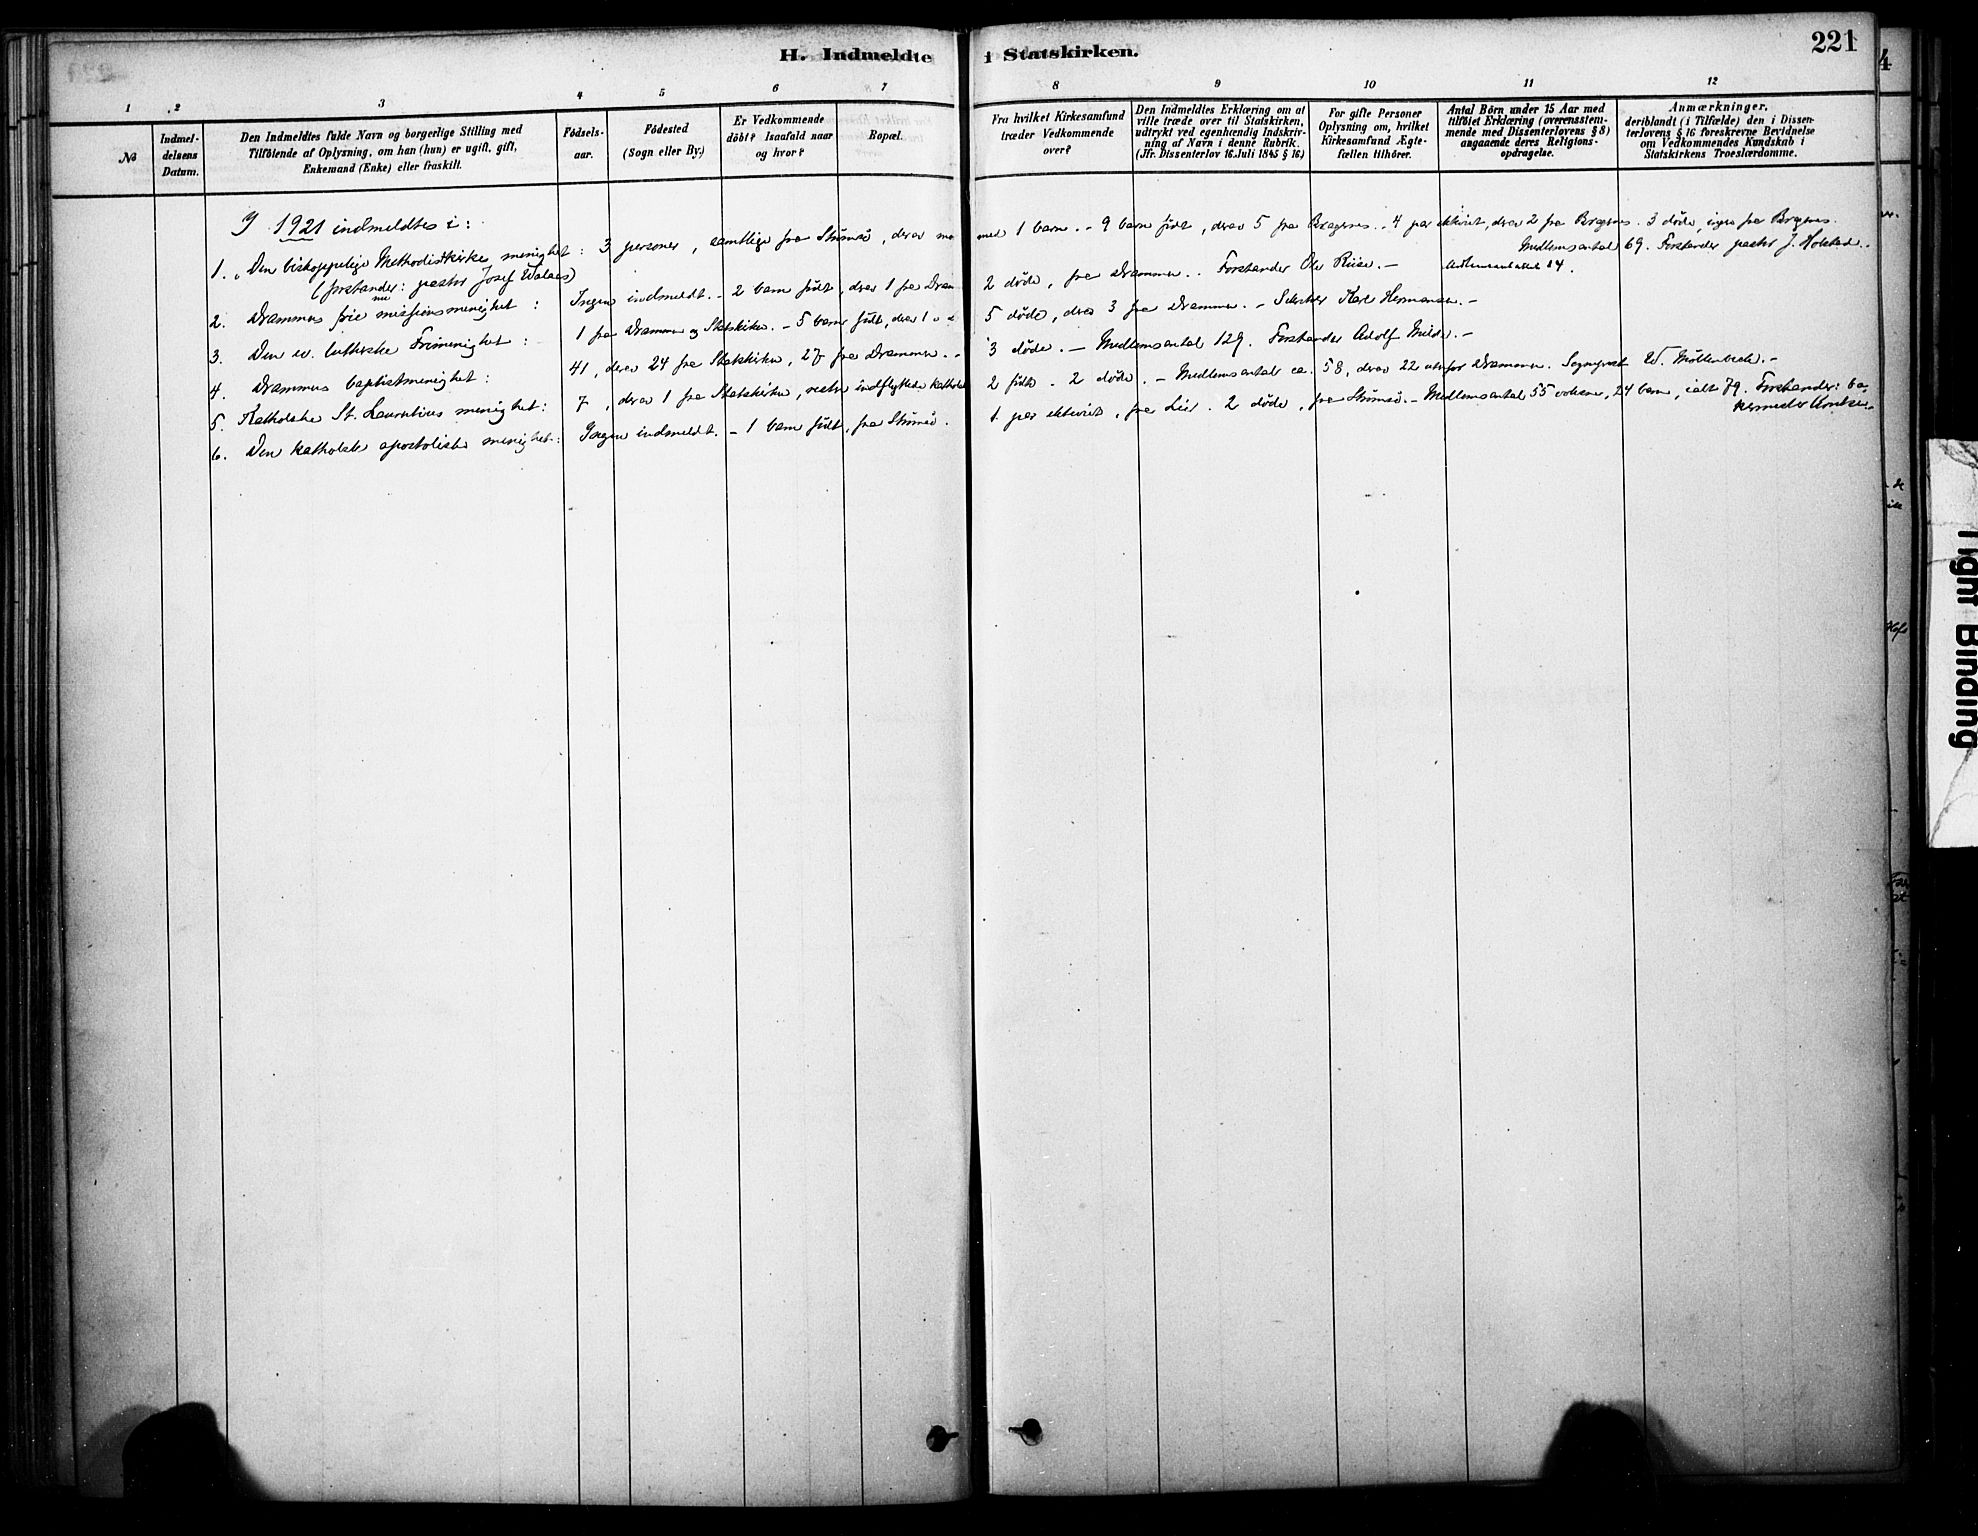 H. Indmeldte i Statskirken.
221
1 2 3 4 5 6 7 8 9 10 11 12
№
Indmel-
delsens
Datum.
Den Indmeldtes fulde Navn og borgerlige Stilling med
Tilföiende af Oplysning, om han (hun) er ugift, gift,
Enkemand (Enke) eller fraskilt.
Födsels-
aar.
Födested
(Sogn eller By.)
Er Vedkommende
döbt? Isaafald naar
og hvor?
Bopæl.
Fra hvilket Kirkesamfund
træder Vedkommende
over?
Den Indmeldtes Erklæring om at
ville træde over til Statskirken,
udtrykt ved egenhændig Indskriv-
ning af Navn i denne Rubrik.
(Jfr. Dissenterlov 16. Juli 1845 § 16)
For gifte Personer
Oplysning om, hvilket
Kirkesamfund Ægte-
fællen tilhörer.
Antal Börn under 15 Aar med
tilföiet Erklæring (overensstem-
mende med Dissenterlovens § 8)
angaaende deres Religions-
opdragelse.
Anmærkninger,
deriblandt (i Tilfælde) den i Dissen-
terlovens § 16 foreskrevne Bevidnelse
om Vedkommendes Kundskab i
Statskirkens Troeslærdomme.
I 1921 indmeldtes i:
1. Den biskoppelige Methodistkirkes menighet: 3 personer, samtlige fra Strømsø, derav med 1 barn. - 9 barn født, derav 5 fra Bragernes. 4 par ekteviet, derav 2 fra Bragernes. 3 døde, ingen fra Bragernes.
(forstander: pastor Josef
Medlemsantal 69. Forstander pastor J. Holstad.
2. Drammens frie missionsmenighet: Ingen indmeldt. - 2 barn født, derav 1 fra Dram 2 døde, fra Drammen. Forstander Ole Riise. - Medlemsantallet 84.
3. Den ev. lutherske Frimenighet: 1 fra Drammen og Statskirken. - 5 barn født, derav 1 5 døde, derav 3 fra Drammen. - Karl Hermansen. -
4. Drammens baptistmenighet: 41, derav 24 fra Statskirken, 27 fra Drammen. - 3 døde. - Medlemsantal 129. Forstander Adolf Milde. -
5. Katholske St. Laurentius menighet: 7, derav 1 fra Statskirken, resten indflyttede katholi 2 født. 2 døde. - Medlemsantal ca. 58, derav 22 utenfor Drammen. Sogneprest W. Møllenbeck. -
6. Den katholsk apostoliske menighet: Ingen indmeldt. - 1 barn født, fra Strømsø. 1 par ekteviet, fra Lier. 2 døde, fra Strømsø. - Medlemsantal 55 voksne, 24 barn, ialt 79. Forstander: ba-
kermester
Tight Binding